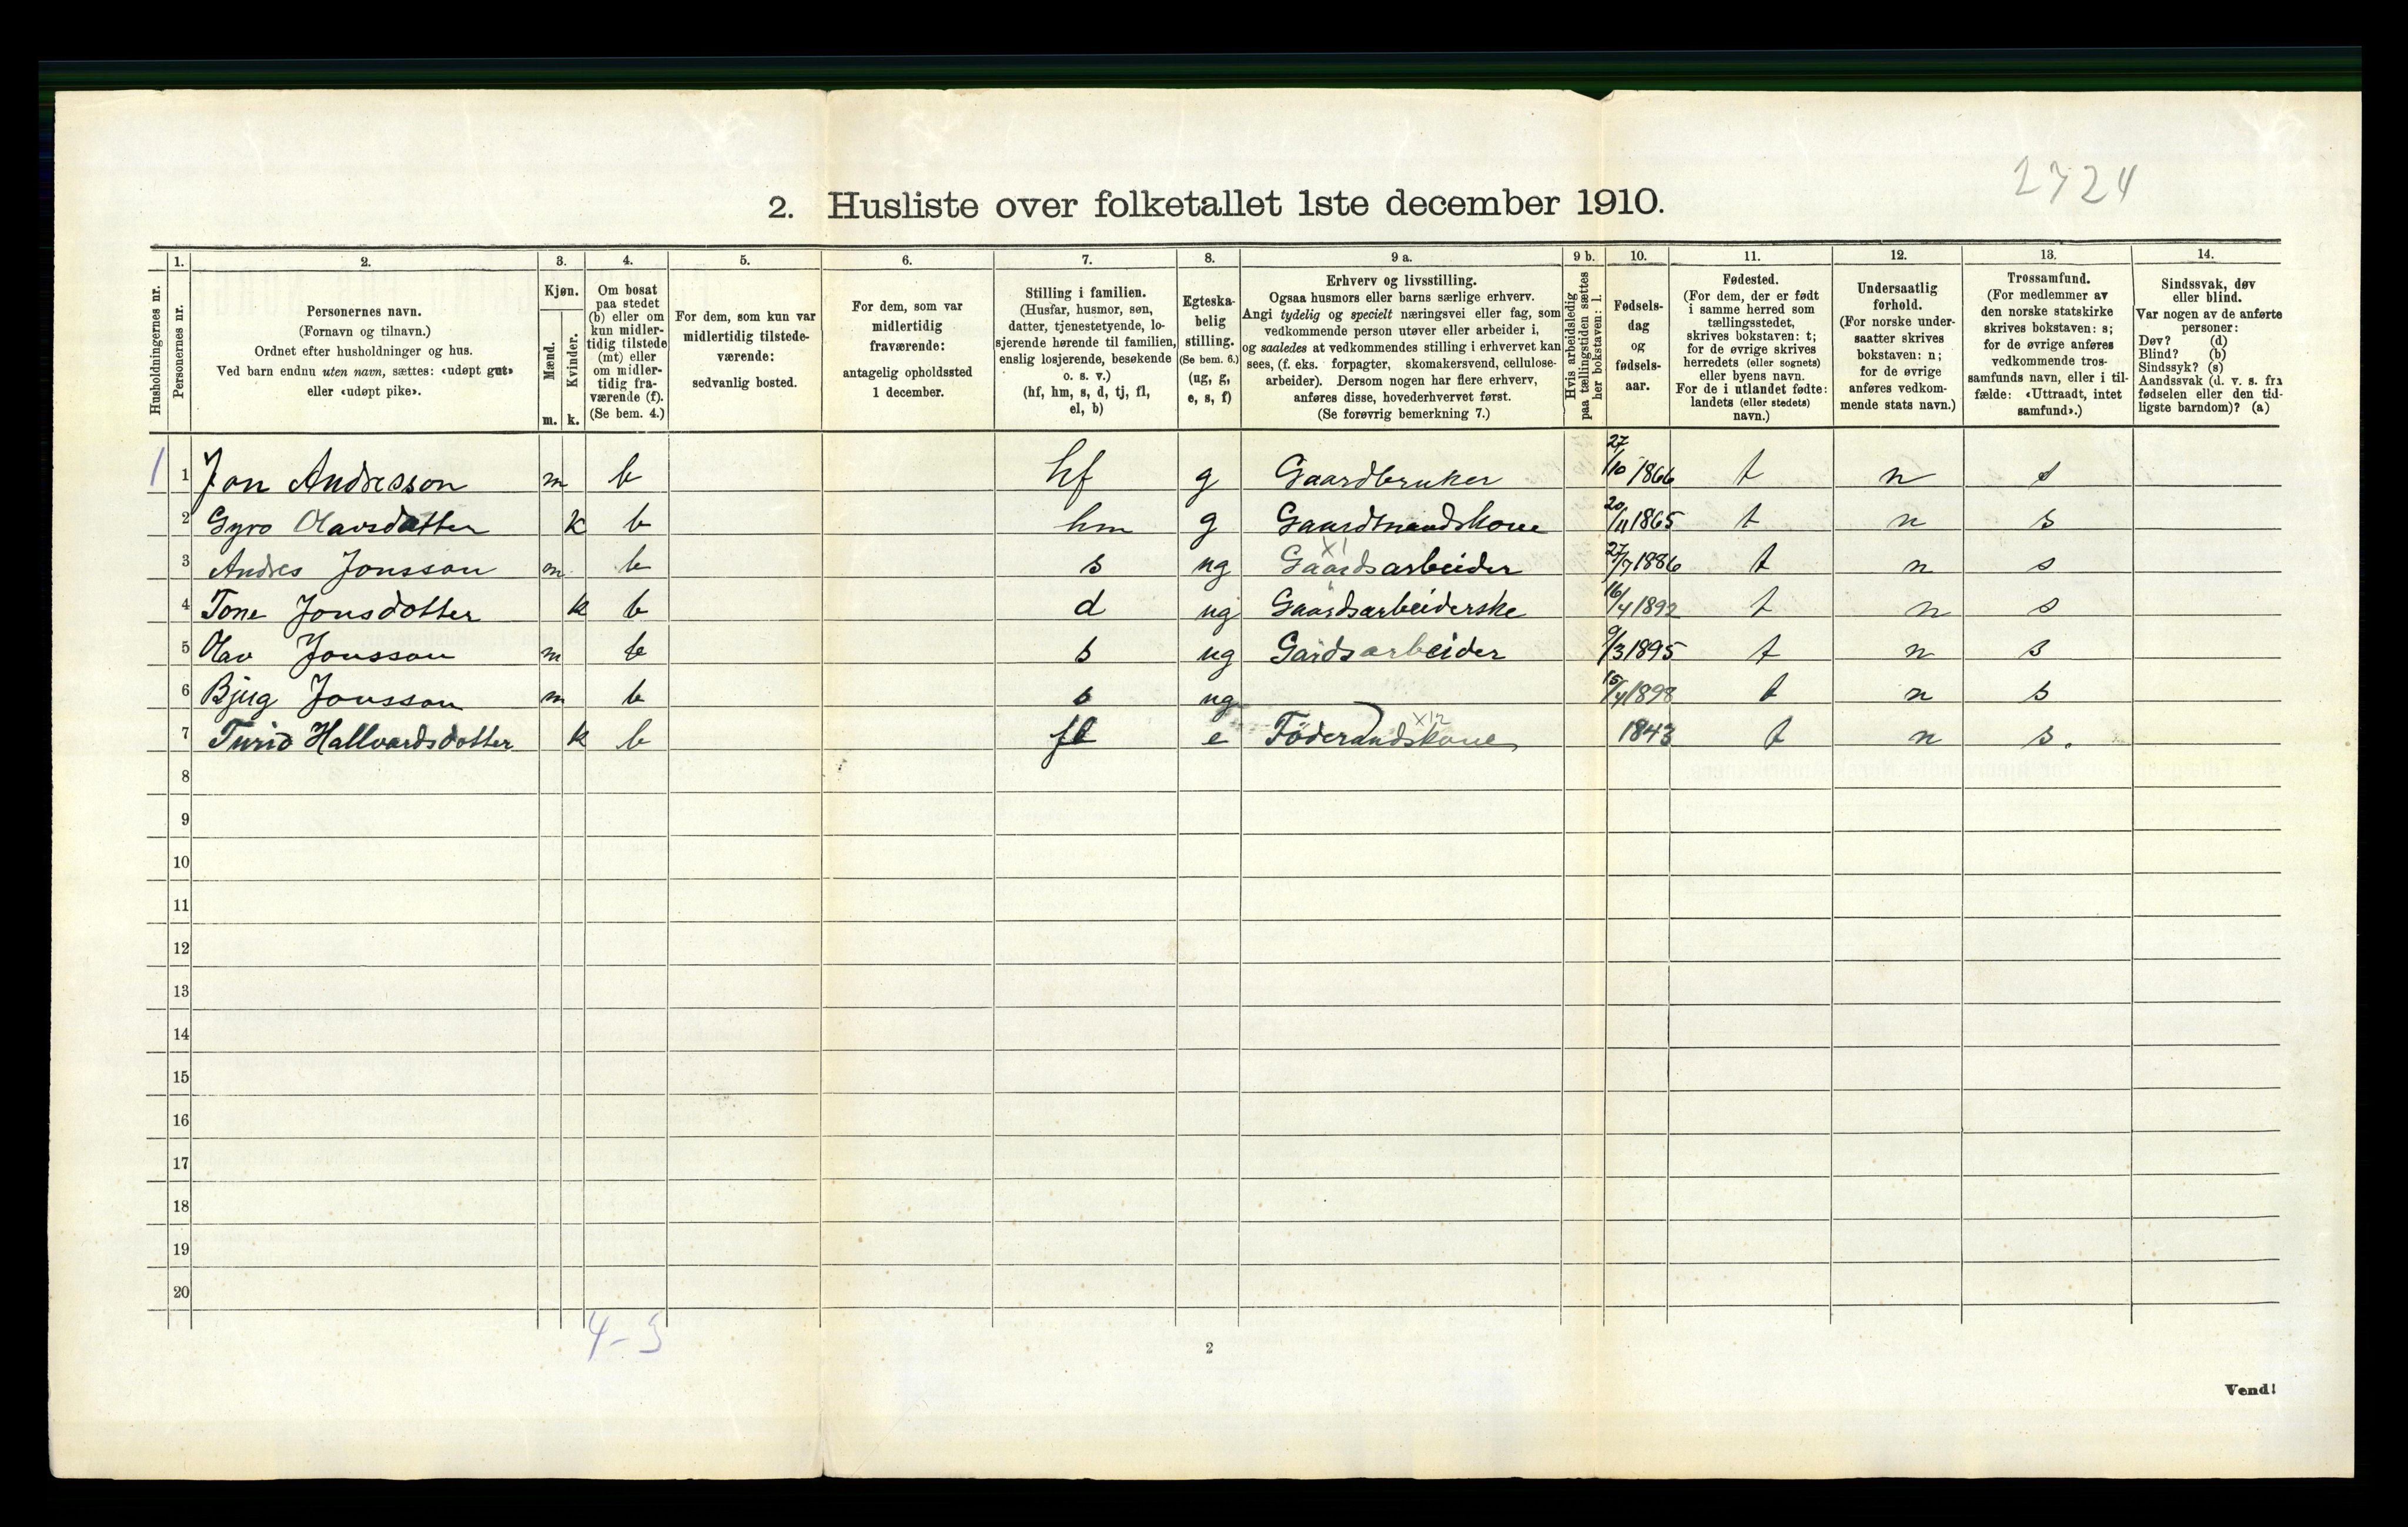 2724
2. Husliste over folketallet 1ste december 1910.
Husholdningernes nr.
1. Personernes nr.
2. Personernes navn.
(Fornavn og tilnavn.)
Ordnet efter husholdninger og hus.
Ved barn endnu uten navn, sættes: «udøpt gut»
eller «udøpt pike».
3. Kjøn.
Mænd. m.
Kvinder. k.
4. Om bosat
paa stedet
(b) eller om
kun midler-
tidig tilstede
(mt) eller
om midler-
tidig fra-
værende (f).
(Se bem. 4.)
5. For dem, som kun var
midlertidig tilstede-
værende:
sedvanlig bosted.
6. For dem, som var
midlertidig
fraværende:
antagelig opholdssted
1 december.
7. Stilling i familien.
(Husfar, husmor, søn,
datter, tjenestetyende, lo-
sjerende hørende til familien,
enslig losjerende, besøkende
o. s. v.)
(hf, hm, s, d, tj, fl,
el, b)
8. Egteska-
belig
stilling.
(Se bem. 6.)
(ug, g,
e, s, f)
9 a. Erhverv og livsstilling.
Ogsaa husmors eller barns særlige erhverv.
Angi tydelig og specielt næringsvei eller fag, som
vedkommende person utøver eller arbeider i,
og saaledes at vedkommendes stilling i erhvervet kan
sees, (f. eks. forpagter, skomakersvend, cellulose-
arbeider). Dersom nogen har flere erhverv,
anføres disse, hovederhvervet først.
(Se forøvrig bemerkning 7.)
9 b. Hvis arbeidsledig
paa tællingstiden sættes
her bokstaven: l.
10. Fødsels-
dag
og
fødsels-
aar.
11. Fødested.
(For dem, der er født
i samme herred som
tællingsstedet,
skrives bokstaven: t;
for de øvrige skrives
herredets (eller sognets)
eller byens navn.
For de i utlandet fødte:
landets (eller stedets)
navn.)
12. Undersaatlig
forhold.
(For norske under-
saatter skrives
bokstaven: n;
for de øvrige
anføres vedkom-
mende stats navn.)
13. Trossamfund.
(For medlemmer av
den norske statskirke
skrives bokstaven: s;
for de øvrige anføres
vedkommende tros-
samfunds navn, eller i til-
fælde: «Uttraadt, intet
samfund».)
14. Sindssvak, døv
eller blind.
Var nogen av de anførte
personer:
Døv? (d)
Blind? (b)
Sindssyk? (s)
Aandssvak (d. v. s. fra
fødselen eller den tid-
ligste barndom)? (a)
1 1 Jon Andresson m b hf g Gaardbruker 27/10 1866 t n s
2 Gyro Olavsdatter k b hm g Gaardmandskone 20/11 1865 t n s
X1
3 Andres Jonsson m b s ug Gaardsarbeider 27/7 1886 t n s
4 Tone Jonsdotter k b d ug Gaardsarbeiderske 16/4 1892 t n s
5 Olav Jonsson m b s ug Gardsarbeider 9/3 1895 t n s
6 Bjug Jonsson m b s ug 15/4 1898 t n s
X12
7 Turid Hallvardsdotter k b fl e Föderaadskone 1843 t n s.
8
9
10
11
12
13
14
15
16
17
18
19
20
4-3
2
Vend!